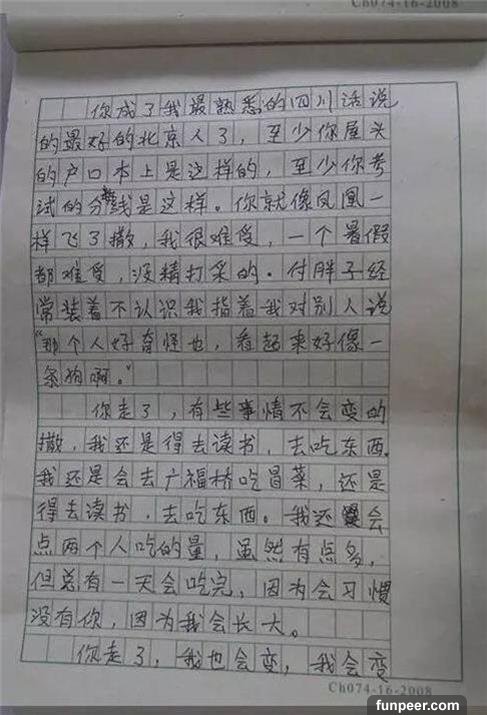 Ch074-16-2008
你成了我最熟悉的四川话说
的最好的北京人了，至少你屋头
的户口本上是这样的，至少你考
试的分数线是这样。你就像凤凰一
样飞了撒，我很难受，一个暑假
都难受，没精打采的。付胖子经
常装着不认识我指着我对别人说
“那个人好奇怪也，看起来好像一
条狗啊。”
你走了，有些事情不会变的
撒，我还是得去读书，去吃东西。
我还是会去广福桥吃冒菜，还是
得去读书，去吃东西。我还会
点两个人吃的量，虽然有点多，
但总有一天会吃完，因为会习惯
没有你，因为我会长大。
你走了，我也会变，我会变
Ch074-16-2008
funpeer.com